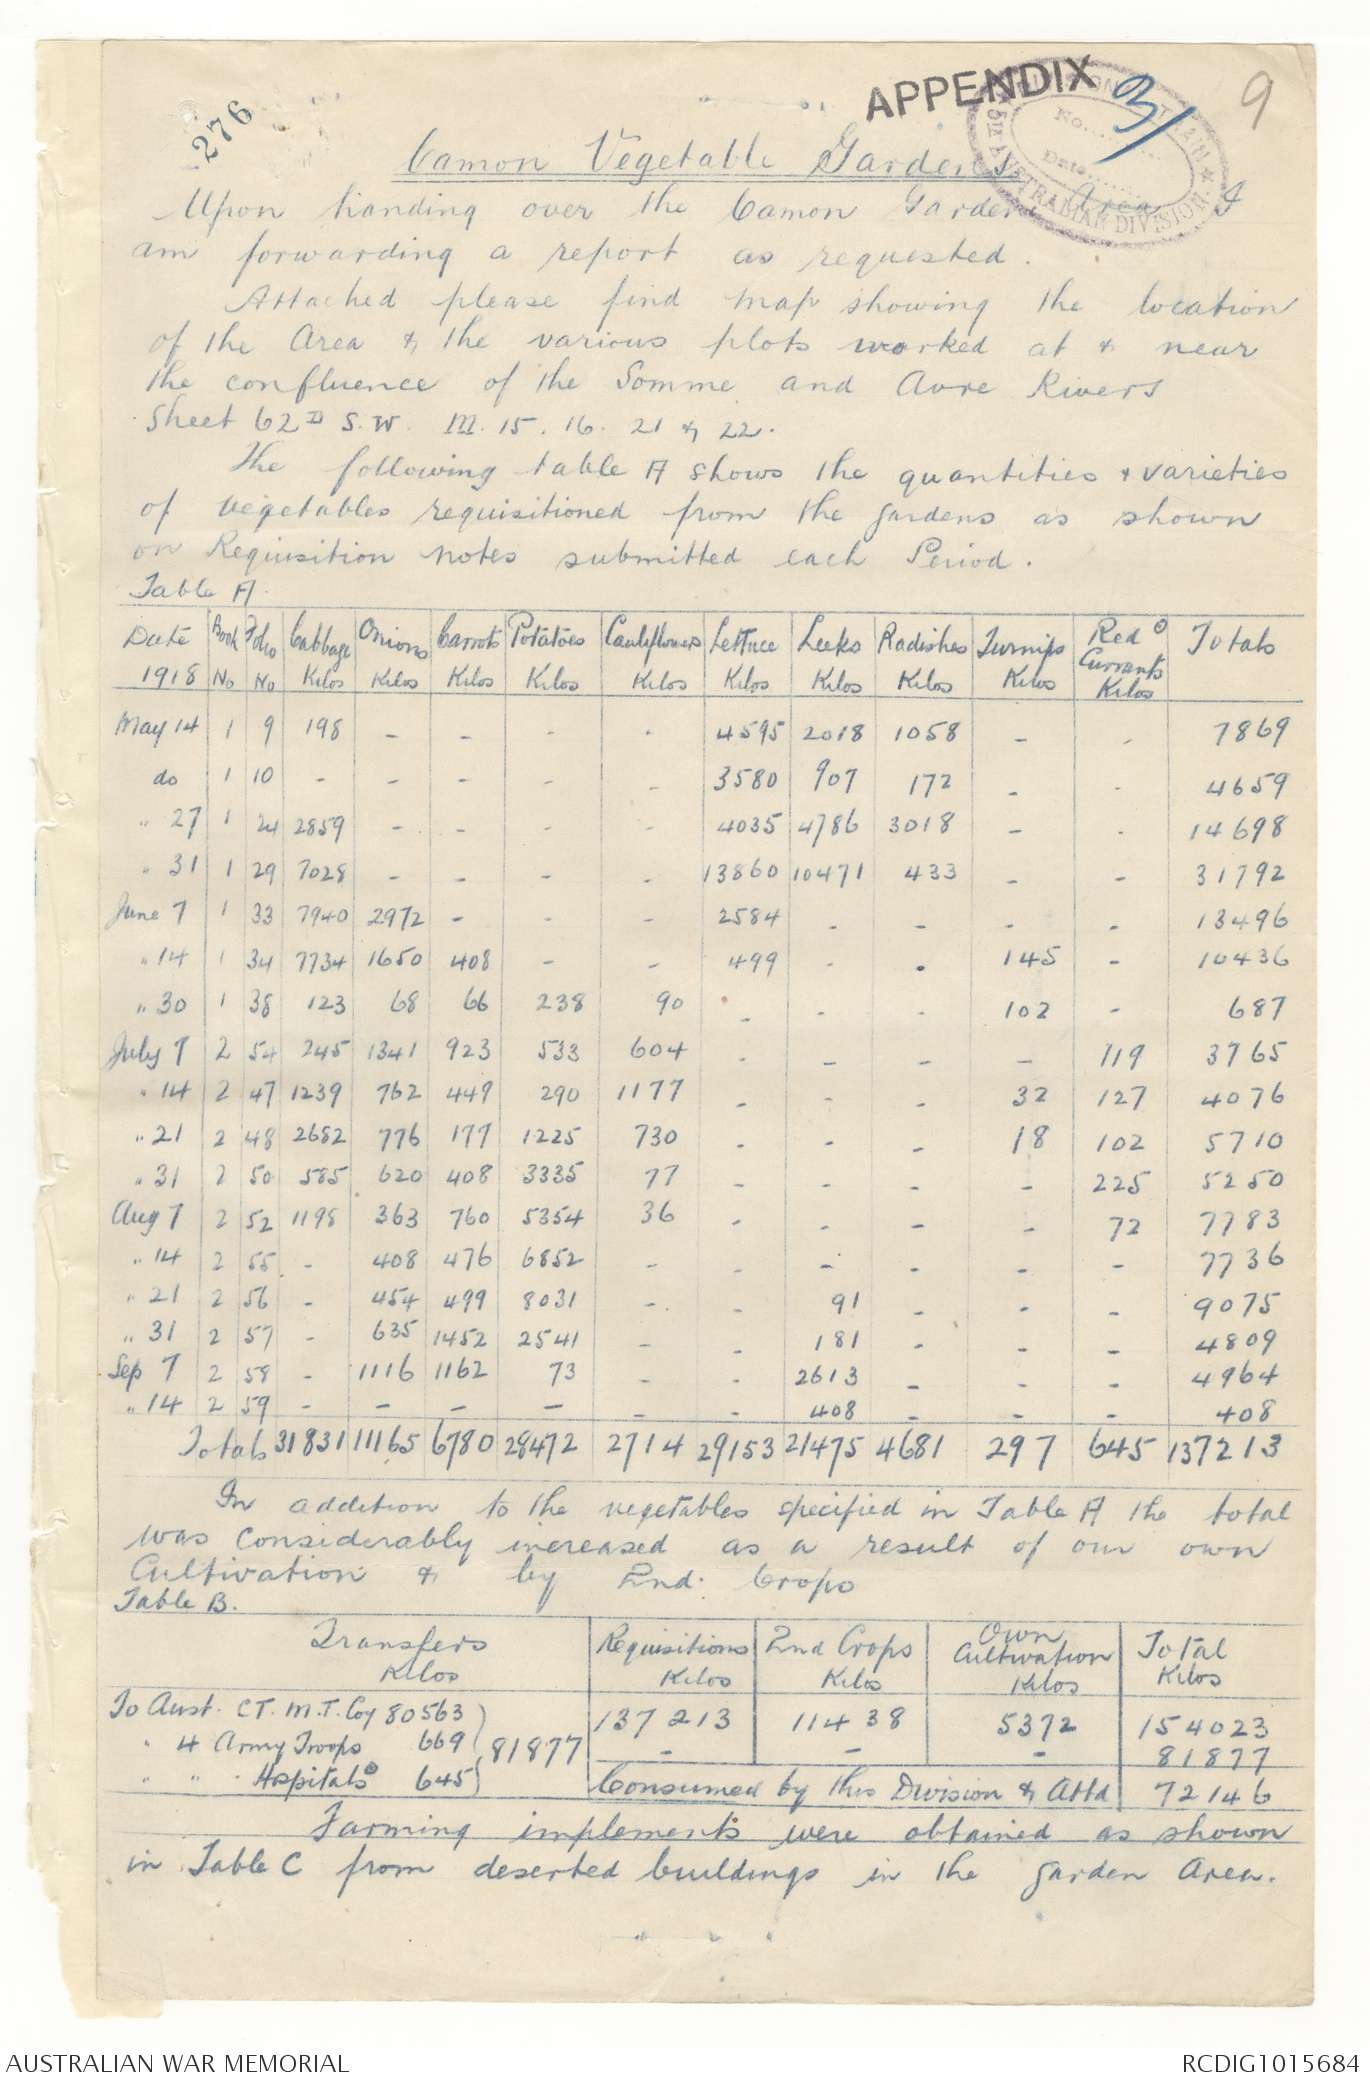 276
APPENDIX 31
9
No.......
Date.......
AUSTRALIAN DIVISION
Camon Vegetable Gardens
Upon handing over the Camon Garden Area I
am forwarding a report as requested.
Attached please find map showing the location
of the Area & the various plots worked at & near
the confluence of the Somme and Avre Rivers
Sheet 62D S.W. M. 15. 16. 21 & 22.
The following table A shows the quantities & varieties
of vegetables requisitioned from the gardens as shown
on Requisition notes submitted each Period.
Table A.
Date 1918 | Book No | Folio No | Cabbage Kilos | Onions Kilos | Carrots Kilos | Potatoes Kilos | Cauliflowers Kilos | Lettuce Kilos | Leeks Kilos | Radishes Kilos | Turnips Kilos | Red Currants Kilos | Totals
May 14 | 1 | 9 | 198 | - | - | - | - | 4595 | 2018 | 1058 | - | - | 7869
do | 1 | 10 | - | - | - | - | - | 3580 | 907 | 172 | - | - | 4659
" 27 | 1 | 24 | 2859 | - | - | - | - | 4035 | 4786 | 3018 | - | - | 14698
" 31 | 1 | 29 | 7028 | - | - | - | - | 13860 | 10471 | 433 | - | - | 31792
June 7 | 1 | 33 | 7940 | 2972 | - | - | - | 2584 | - | - | - | - | 13496
" 14 | 1 | 34 | 7734 | 1650 | 408 | - | - | 499 | - | - | 145 | - | 10436
" 30 | 1 | 38 | 123 | 68 | 66 | 238 | 90 | - | - | - | 102 | - | 687
July 7 | 2 | 54 | 245 | 1341 | 923 | 533 | 604 | - | - | - | - | 119 | 3765
" 14 | 2 | 47 | 1239 | 762 | 449 | 290 | 1177 | - | - | - | 32 | 127 | 4076
" 21 | 2 | 48 | 2682 | 776 | 177 | 1225 | 730 | - | - | - | 18 | 102 | 5710
" 31 | 2 | 50 | 585 | 620 | 408 | 3335 | 77 | - | - | - | - | 225 | 5250
Aug 7 | 2 | 52 | 1198 | 363 | 760 | 5354 | 36 | - | - | - | - | 72 | 7783
" 14 | 2 | 55 | - | 408 | 476 | 6852 | - | - | - | - | - | - | 7736
" 21 | 2 | 56 | - | 454 | 499 | 8031 | - | - | 91 | - | - | - | 9075
" 31 | 2 | 57 | - | 635 | 1452 | 2541 | - | - | 181 | - | - | - | 4809
Sep 7 | 2 | 58 | - | 1116 | 1162 | 73 | - | - | 2613 | - | - | - | 4964
" 14 | 2 | 59 | - | - | - | - | - | - | 408 | - | - | - | 408
Totals 31831 | 11165 | 6780 | 28472 | 2714 | 29153 | 21475 | 4681 | 297 | 645 | 137213
In addition to the vegetables specified in Table A the total
was considerably increased as a result of our own
Cultivation & by 2nd. Crops
Table B.
Transfers Kilos | Requisitions Kilos | 2nd Crops Kilos | Own Cultivation Kilos | Total Kilos
To Aust. C.T. M.T. Coy 80563 | 137213 | 11438 | 5372 | 154023
" 4 Army Troops 669 } 81877 | - | - | - | 81877
" " Hospitals 645 | Consumed by this Division & Attd | 72146
Farming implements were obtained as shown
in Table C from deserted buildings in the garden Area.
AUSTRALIAN WAR MEMORIAL
RCDIG1015684